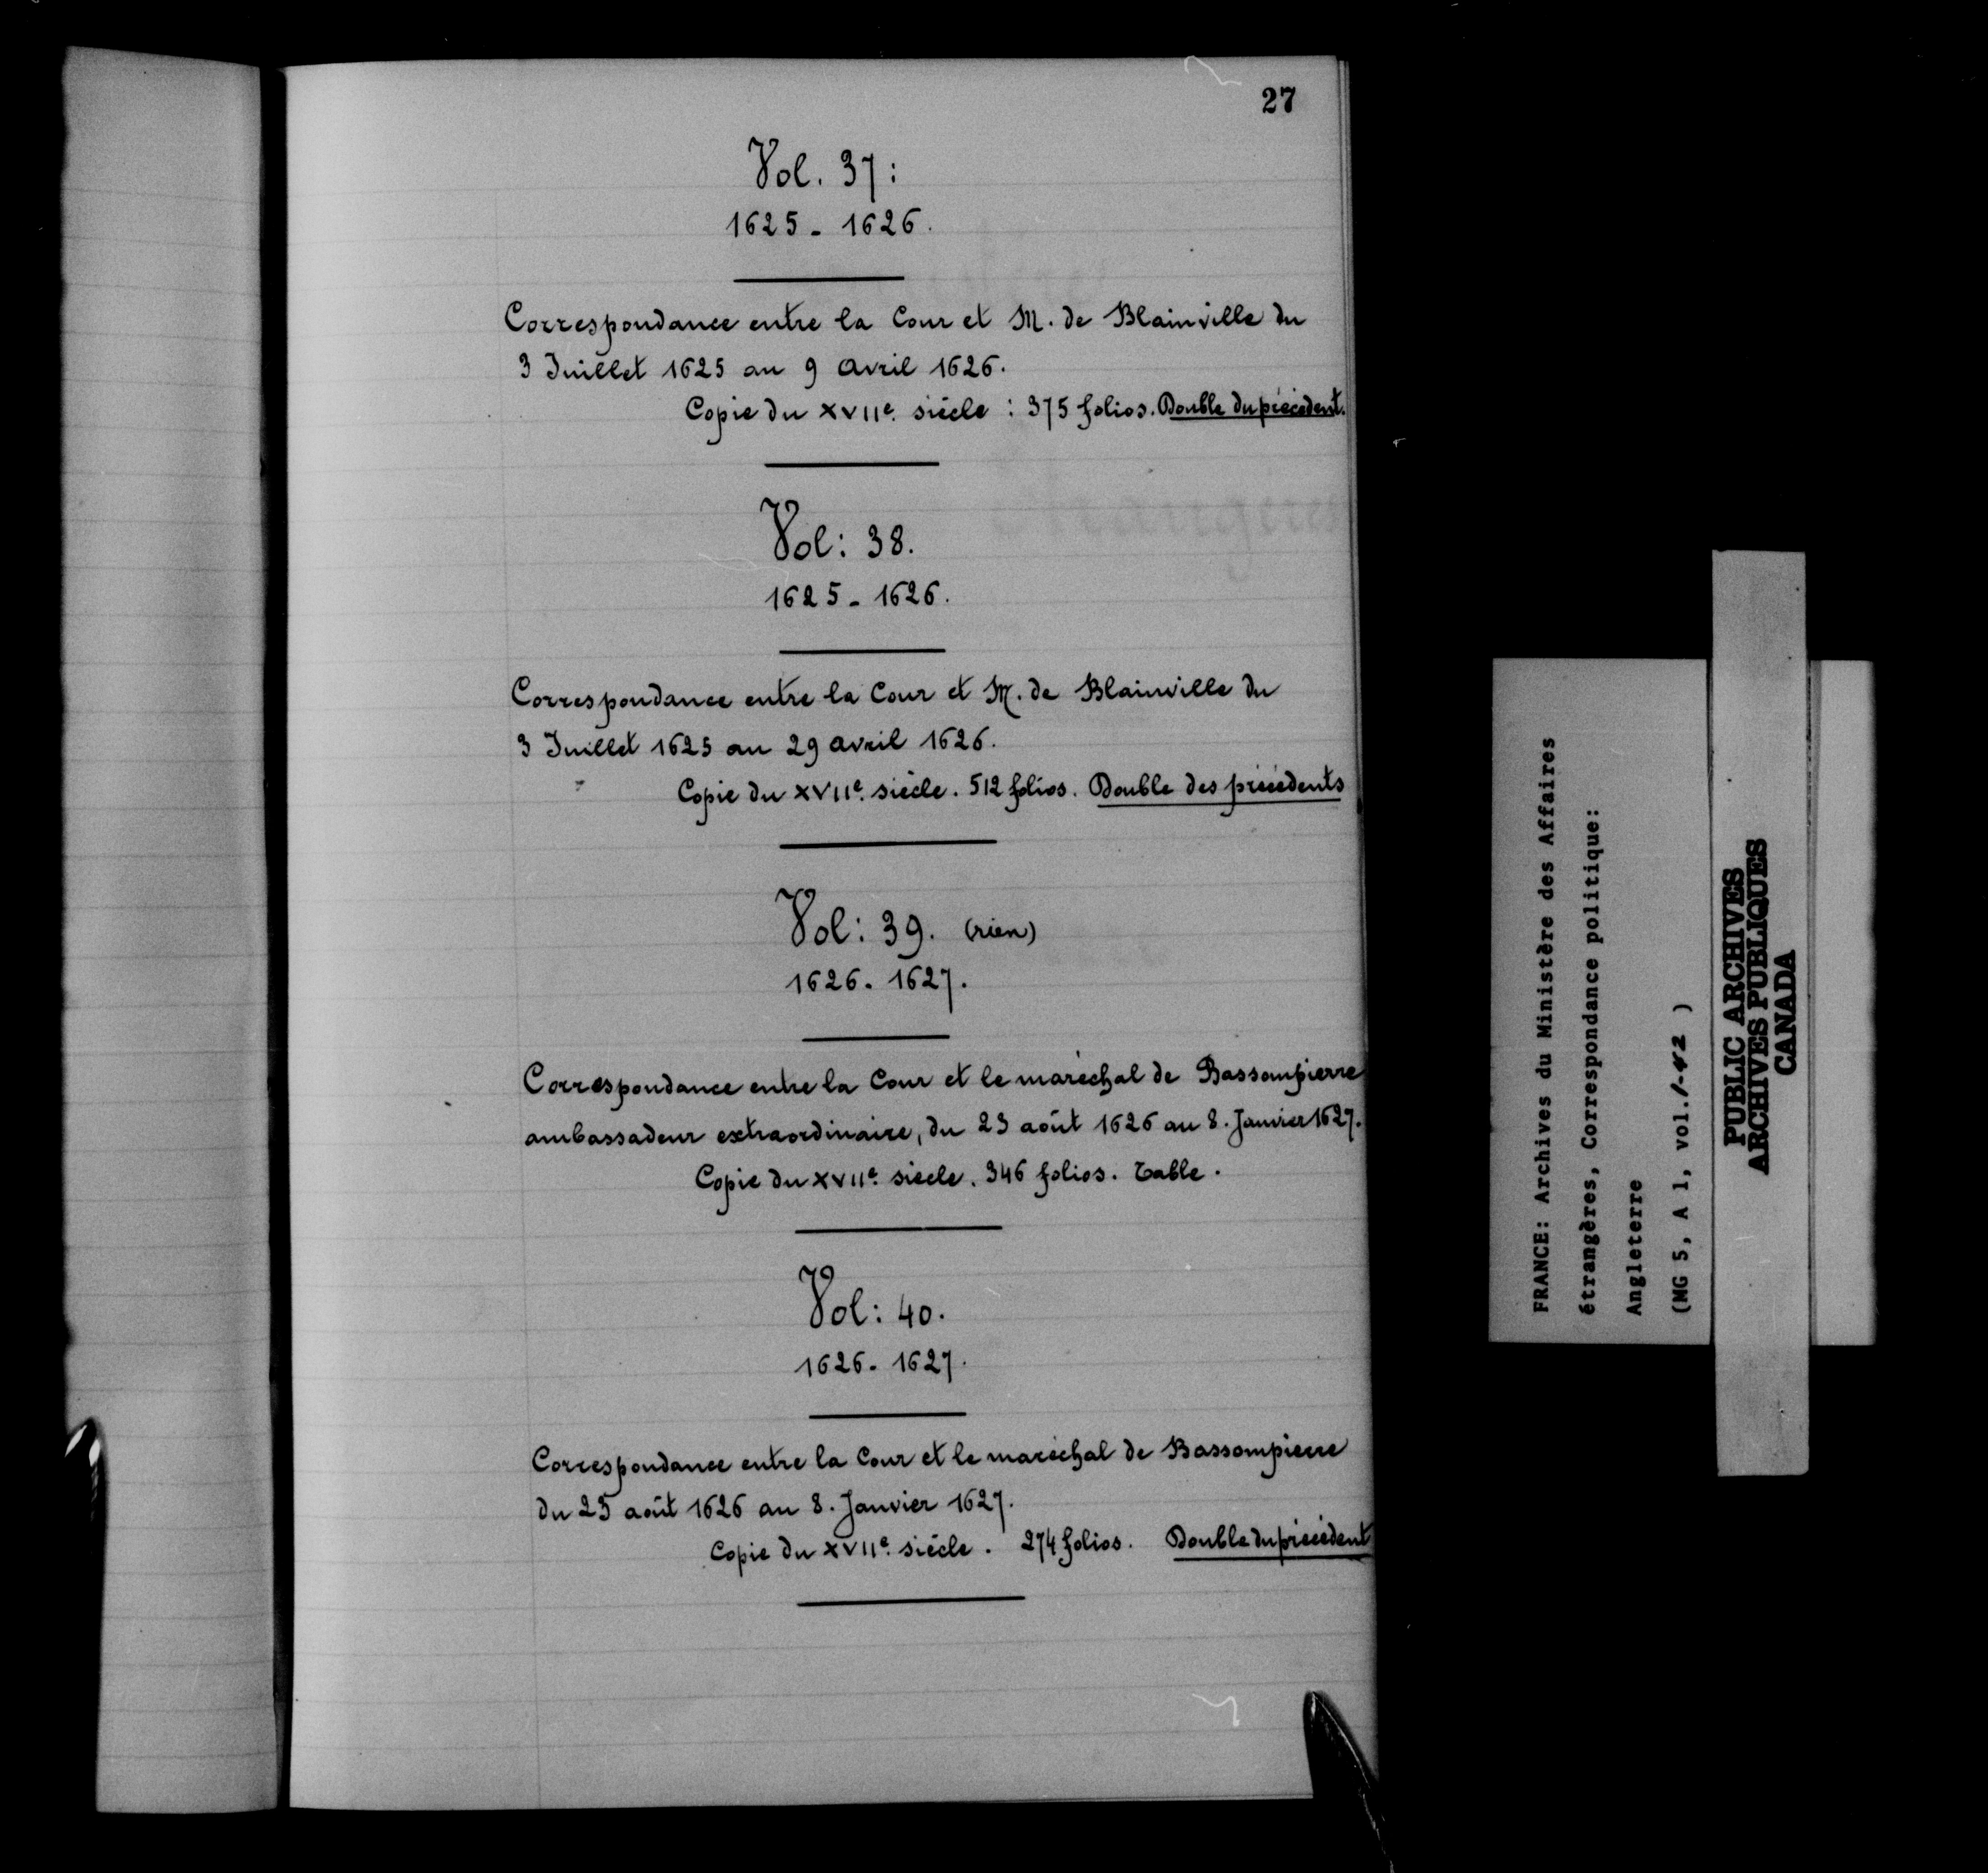 27
Vol. 37:
1625 - 1626.
Correspondance entre la Cour et M. de Blainville du
3 Juillet 1625 au 9 avril 1626.
Copie du XVIIe. siècle : 375 folios. Double du précédent.
Vol: 38.
1625 - 1626.
Correspondance entre la Cour et M. de Blainville du
3 Juillet 1625 au 29 avril 1626.
Copie du XVIIe. siècle. 512 folios. Double des précédents
Vol: 39. (rien)
1626 - 1627.
Correspondance entre la Cour et le maréchal de Bassompierre
ambassadeur extraordinaire, du 23 août 1626 au 8. Janvier 1627.
Copie du XVIIe. siècle. 346 folios. Table.
Vol: 40.
1626 - 1627.
Correspondance entre la Cour et le maréchal de Bassompierre
du 23 août 1626 au 8. Janvier 1627.
Copie du XVIIe. siècle. 274 folios. Double du précédent
FRANCE: Archives du Ministère des Affaires
étrangères, Correspondance politique:
Angleterre
(MG 5, A 1, vol.1-42 )
PUBLIC ARCHIVES
ARCHIVES PUBLIQUES
CANADA